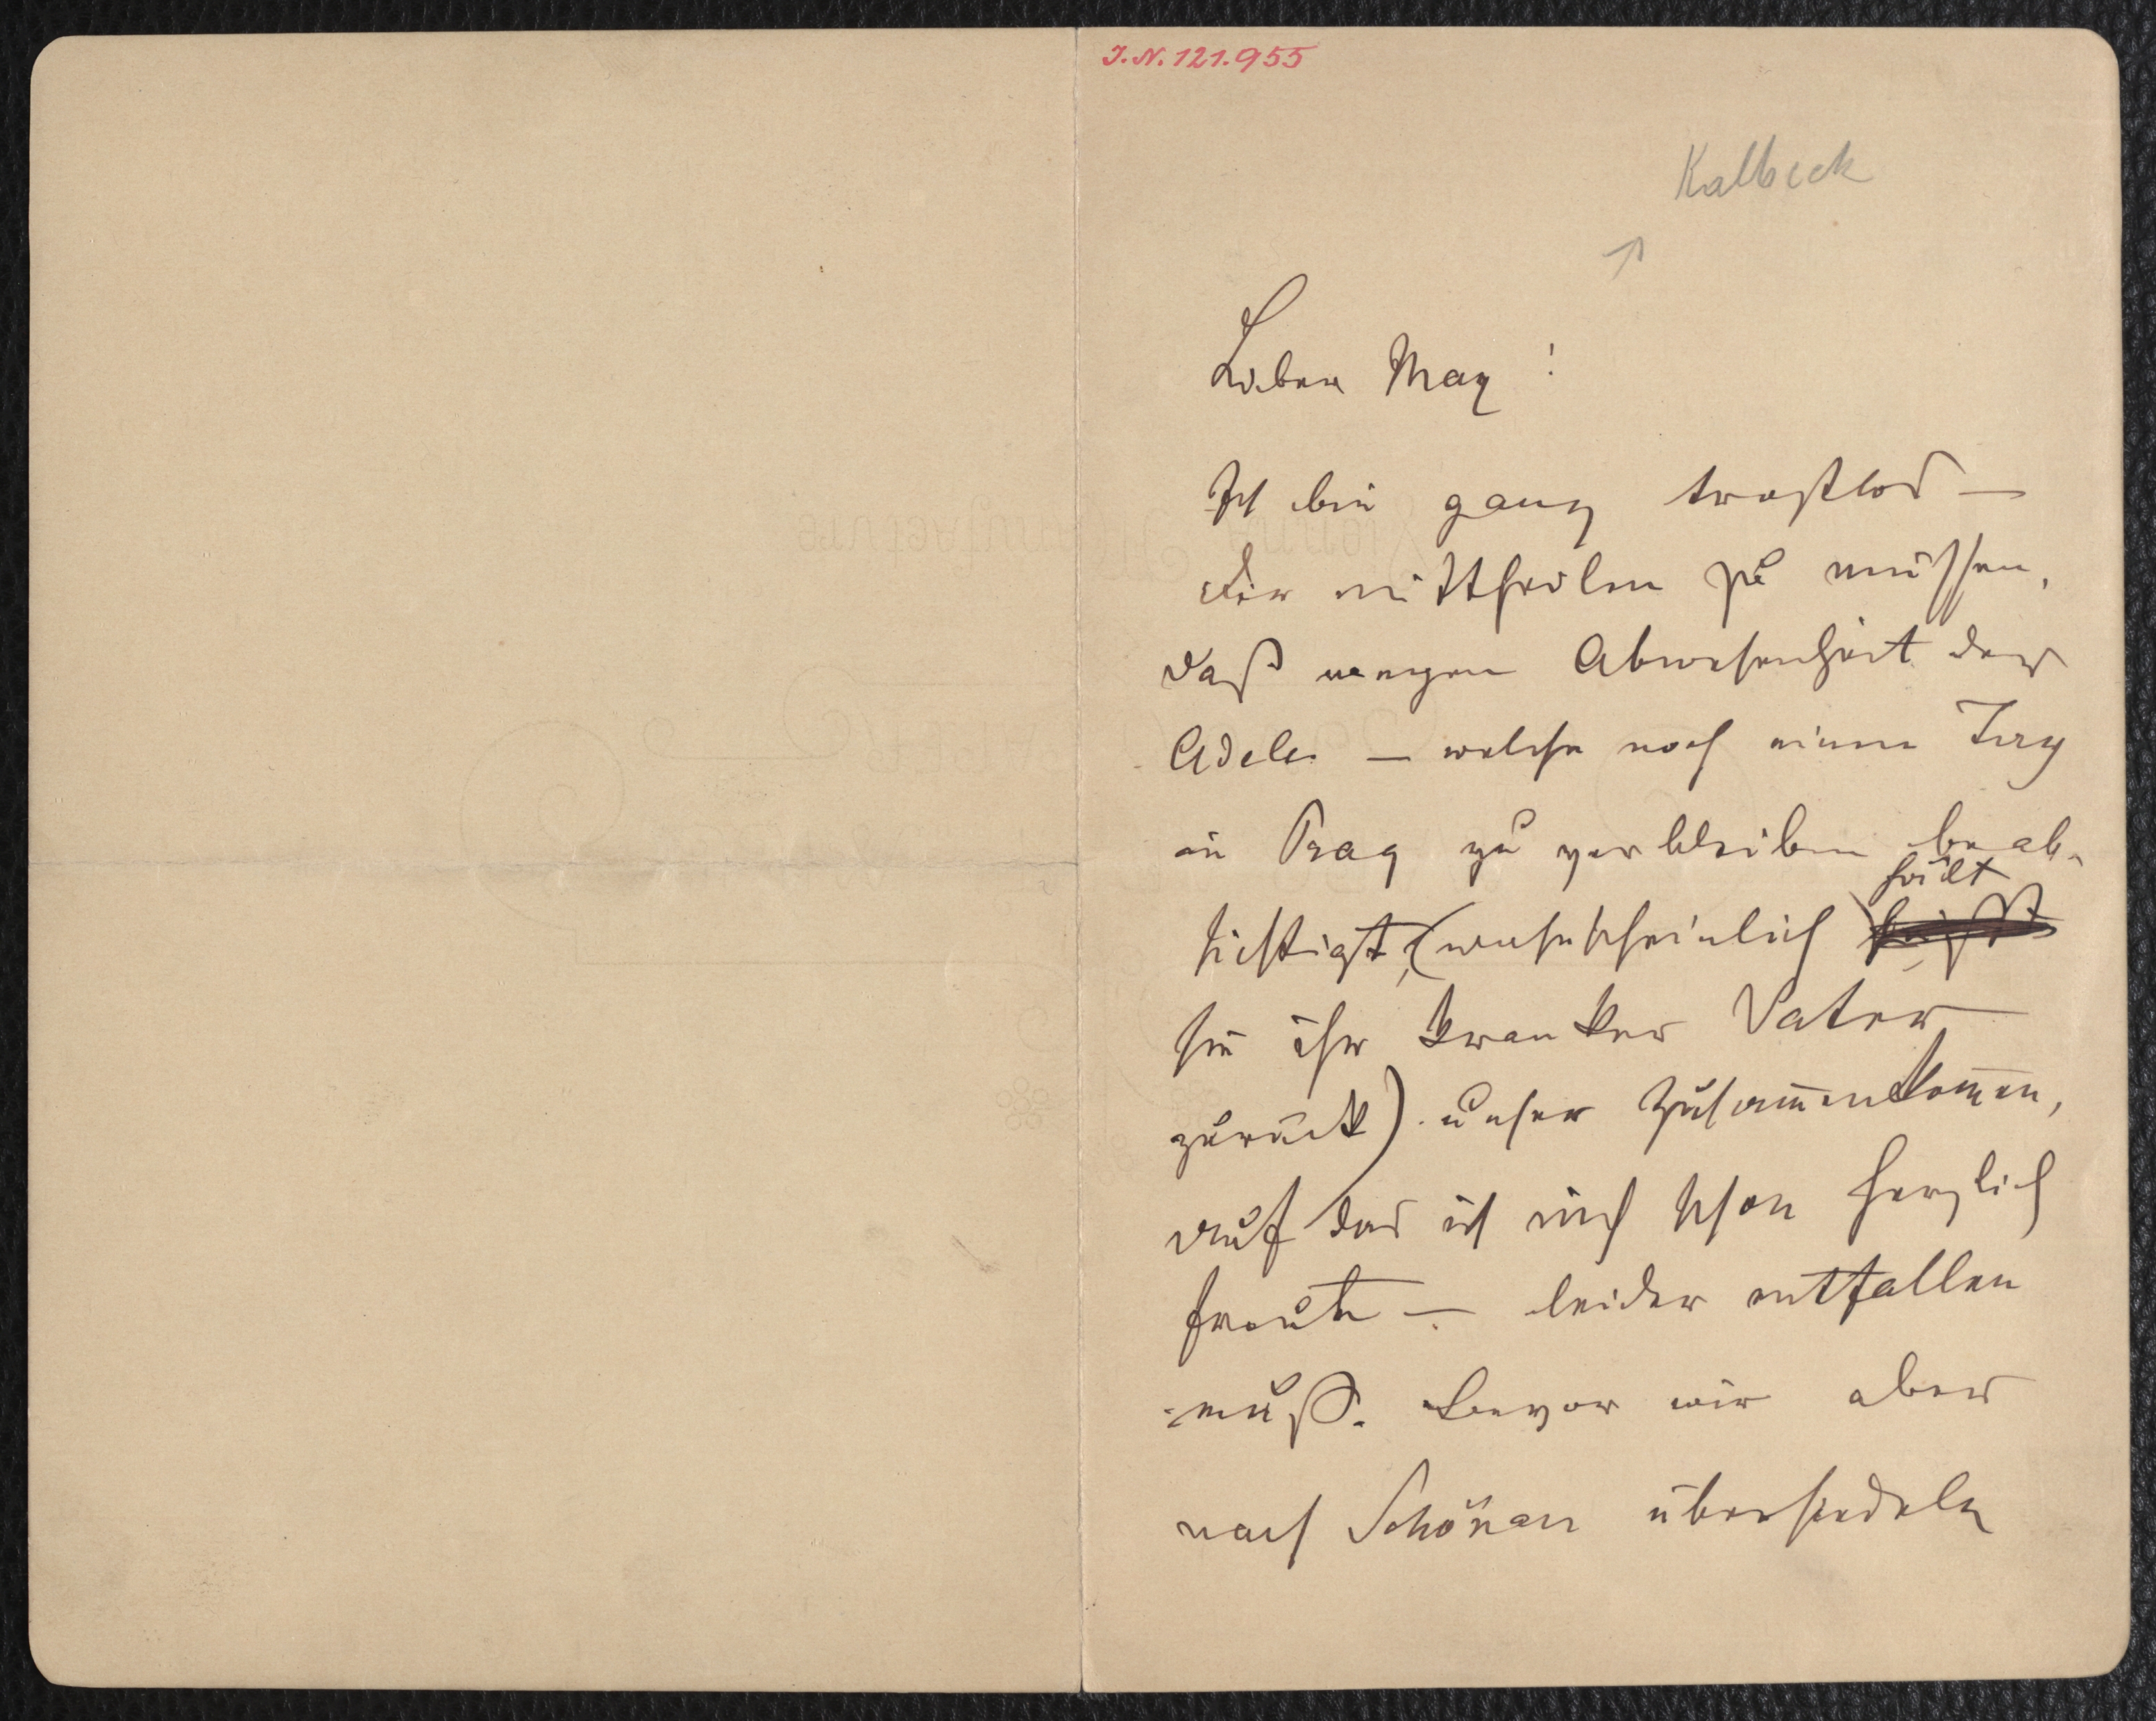 I. N. 121.955
Kalbeck
Lieber Max!
Ich bin ganz trostlos —
Dir mittheilen zu müssen,
daß wegen Abwesenheit der
Adele — welche noch einen Tag
in Prag zu verbleiben beab-
hält
sichtigt, (wahrscheinlich
sie ihr kranker Vater
zurück) unser Zusam̄enkom̄en,
auf das ich mich schon herzlich
freute — leider entfallen
muß. Bevor wir aber
nach Schönau übersiedeln